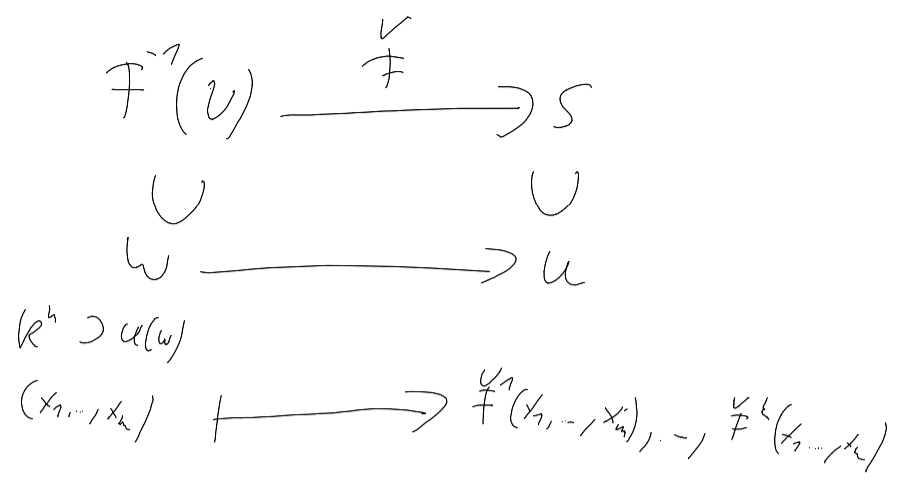 F̌
F⁻¹(U) ⟶ S
∪ ∪
W ⟶ U
Rⁿ ⊃ u(W)
(x₁,..,xₙ) ⟼ F̌¹(x₁,..,xₙ),..,F̌ᵏ(x₁..,xₙ)